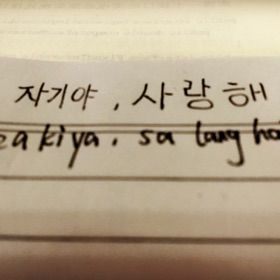 자기야, 사랑해
akiya. sa lang ha